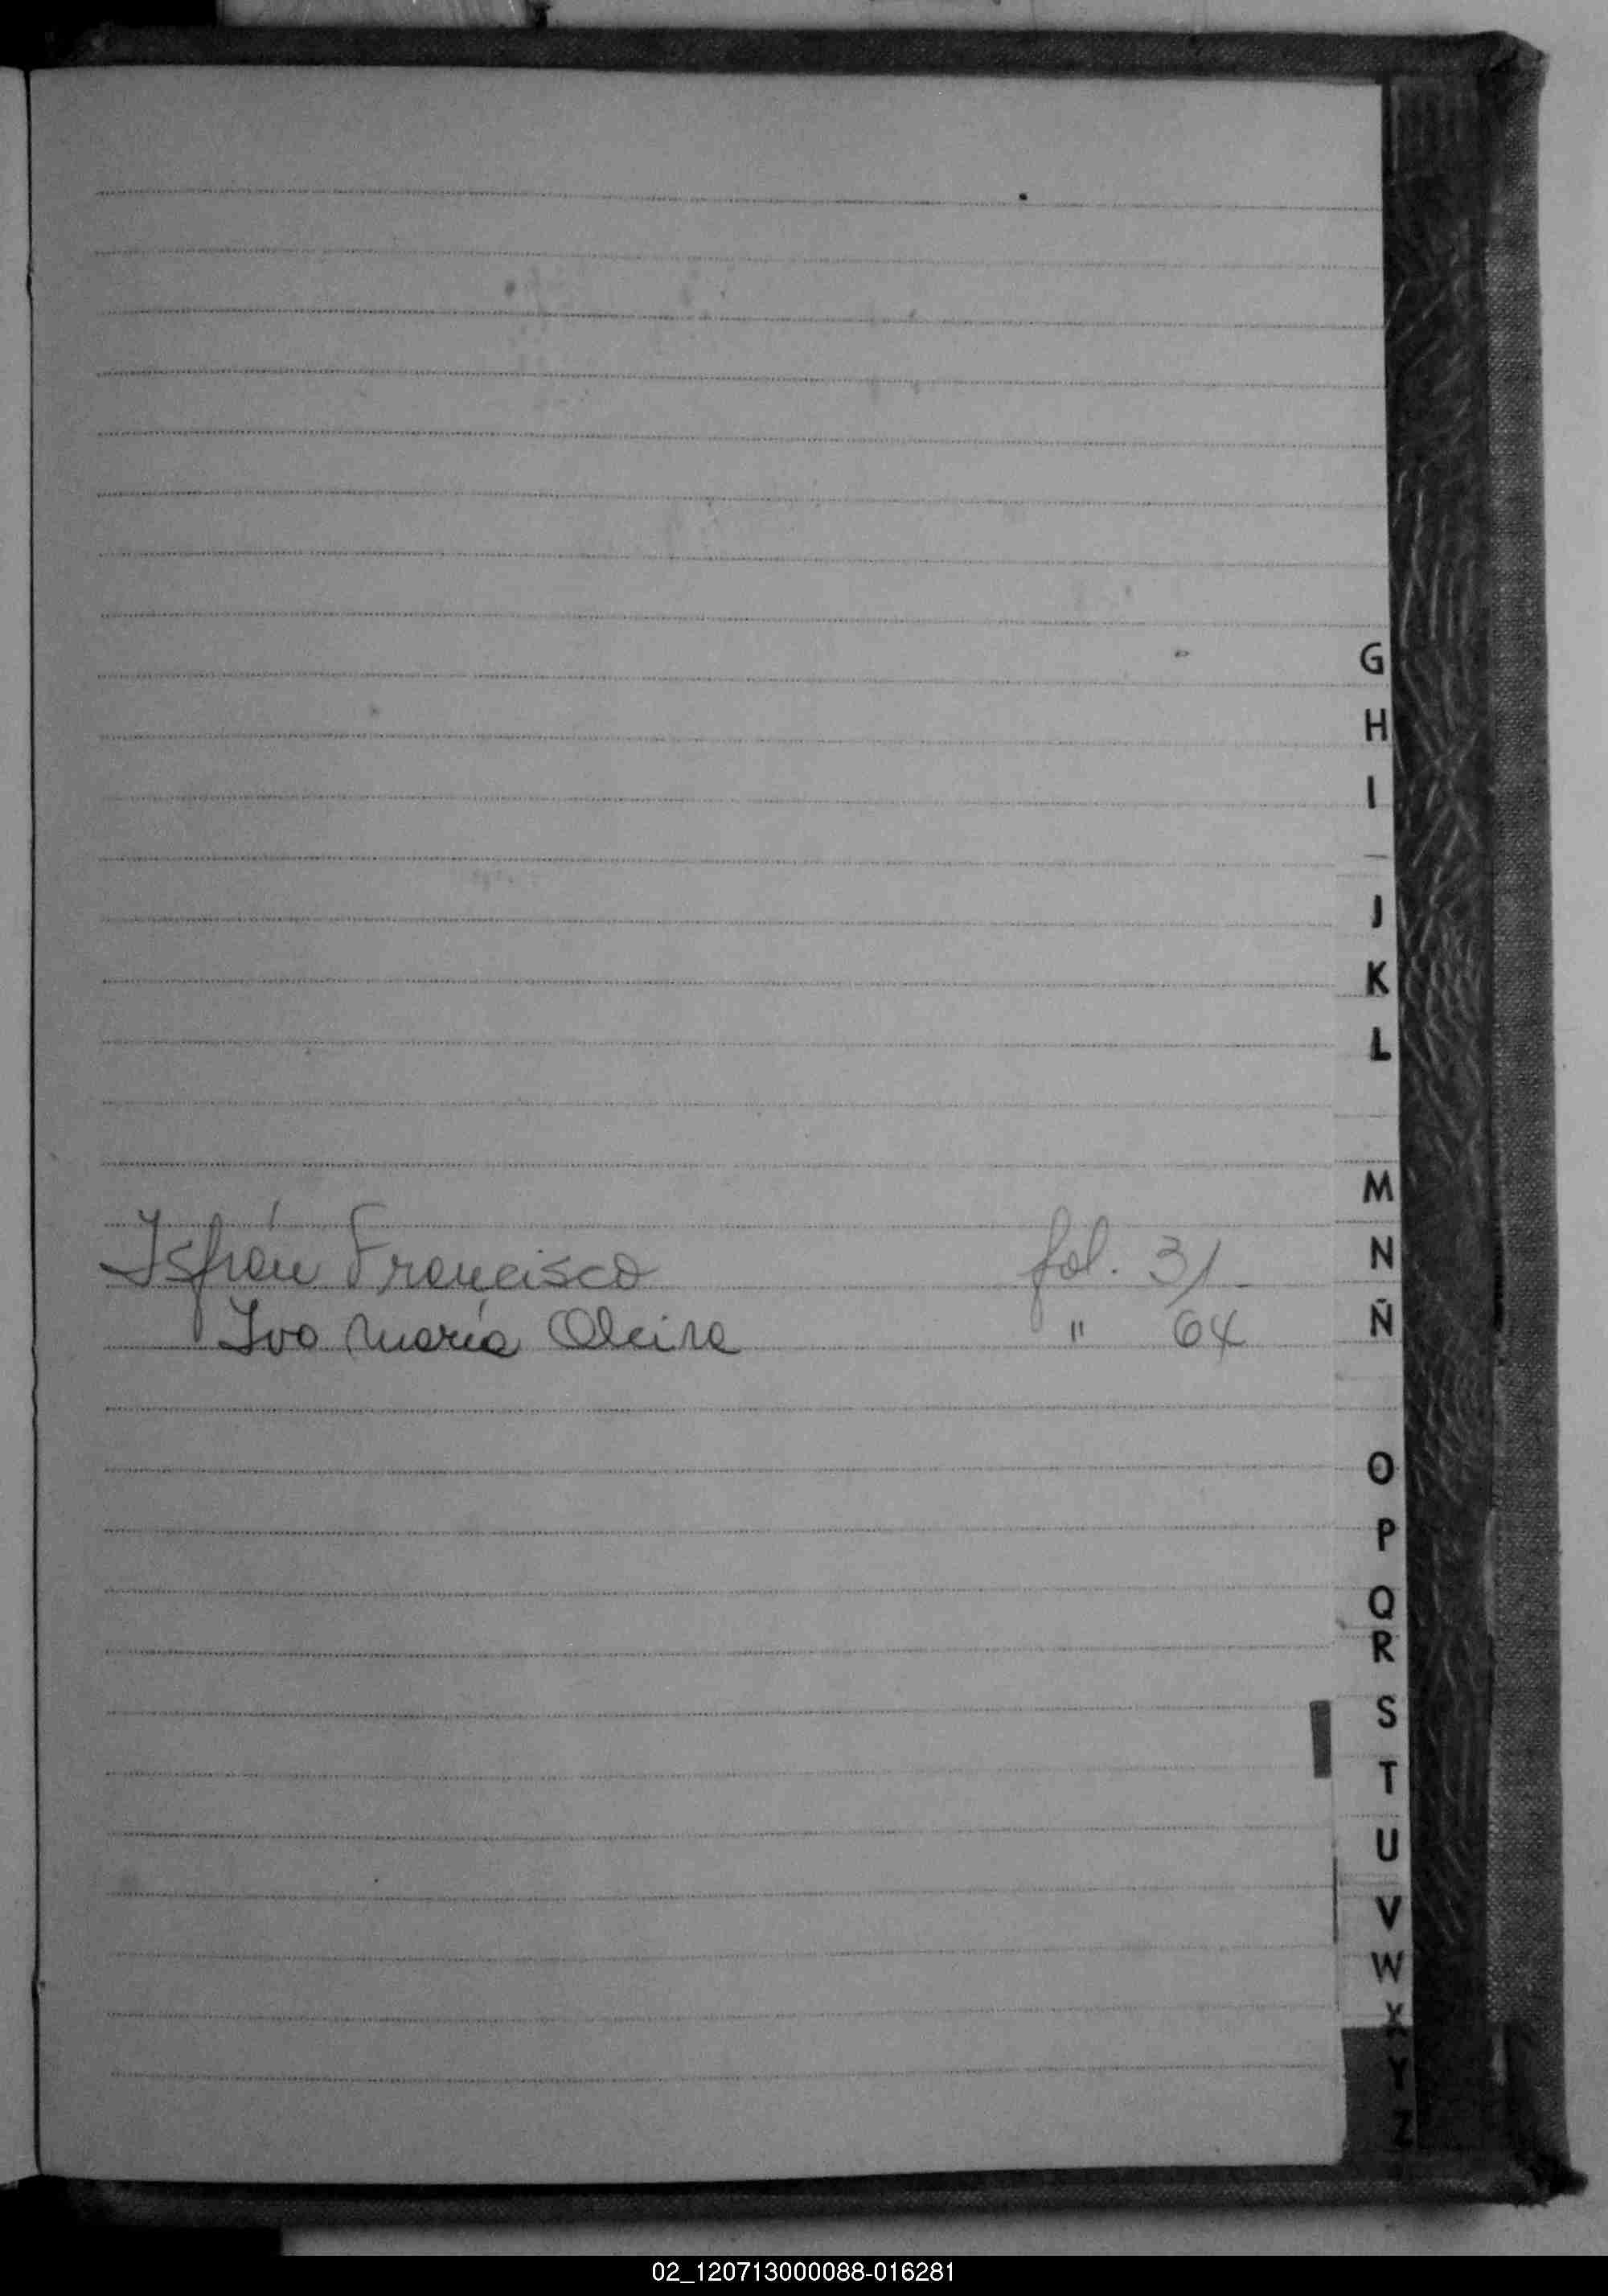 G
H
I
J
K
L
M
Isfrán Francisco fol. 31-
N
Ivo María Oleira " 64
Ñ
O
P
Q
R
S
T
U
V
W
X
Y
Z
02_120713000088-016281